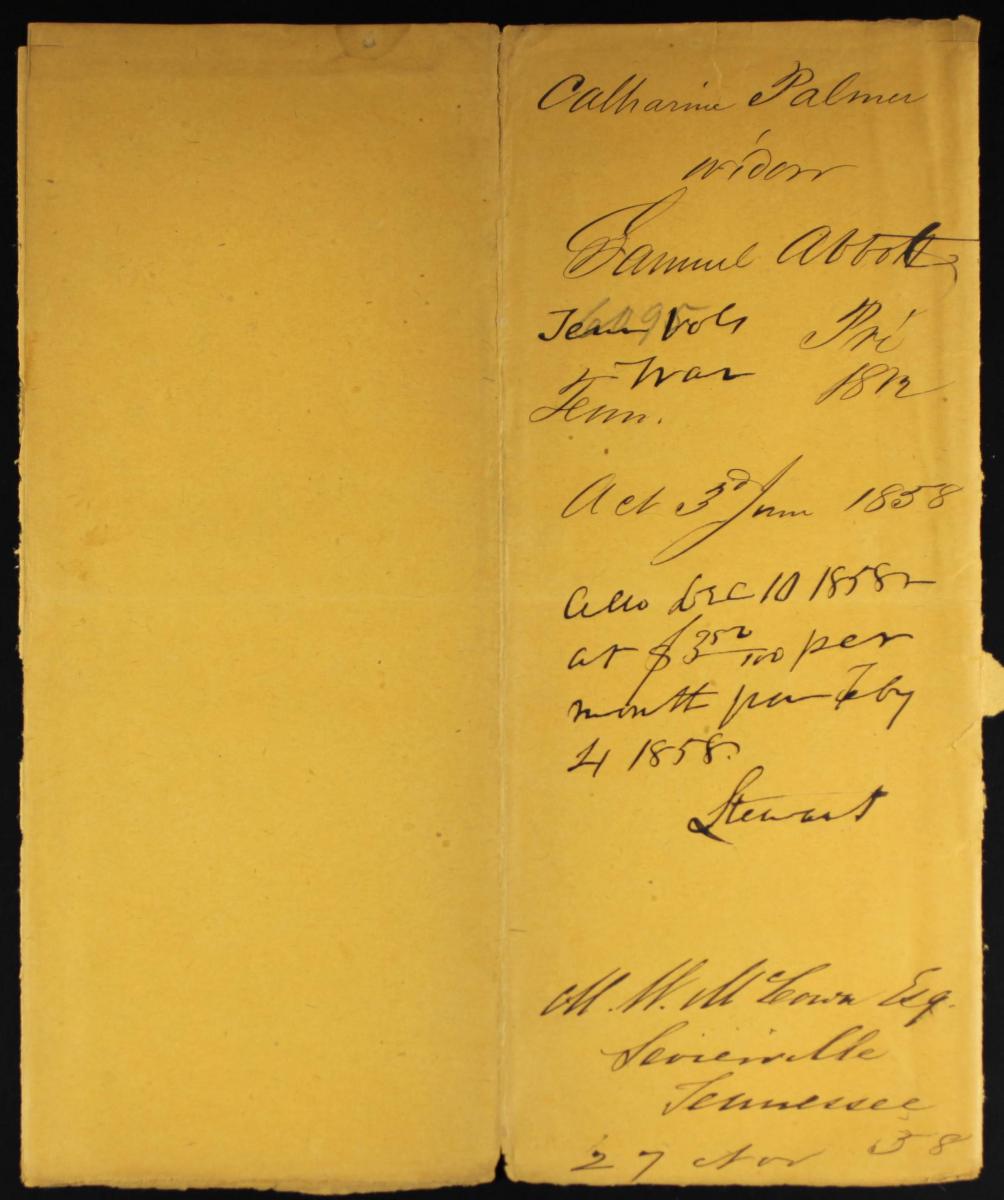 Catharine Palmer
widow
Samuel Abbott
Tenn Vols Pri
War 1812
Tenn.
Act 3d June 1858
Allo Dec 10 1858
at $3 50/100 per
month from Feby
4 1858.
Stewart
M. W. McCown Esq.
Sevierville
Tennessee
27 Nov 58